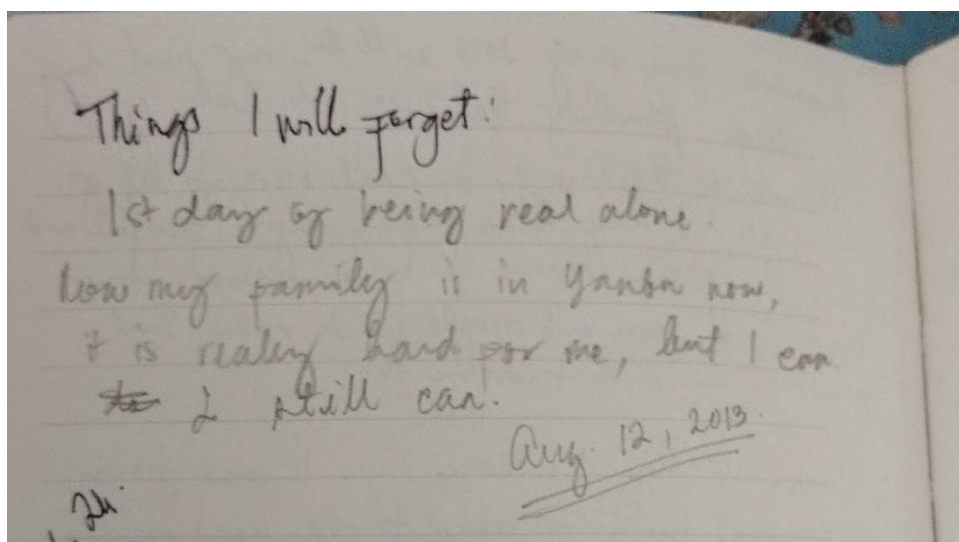 Things I will forget:
1st day of being real alone.
how my family is in Yanbu now,
it is really hard for me, but I can
I still can.
Aug. 12, 2013.